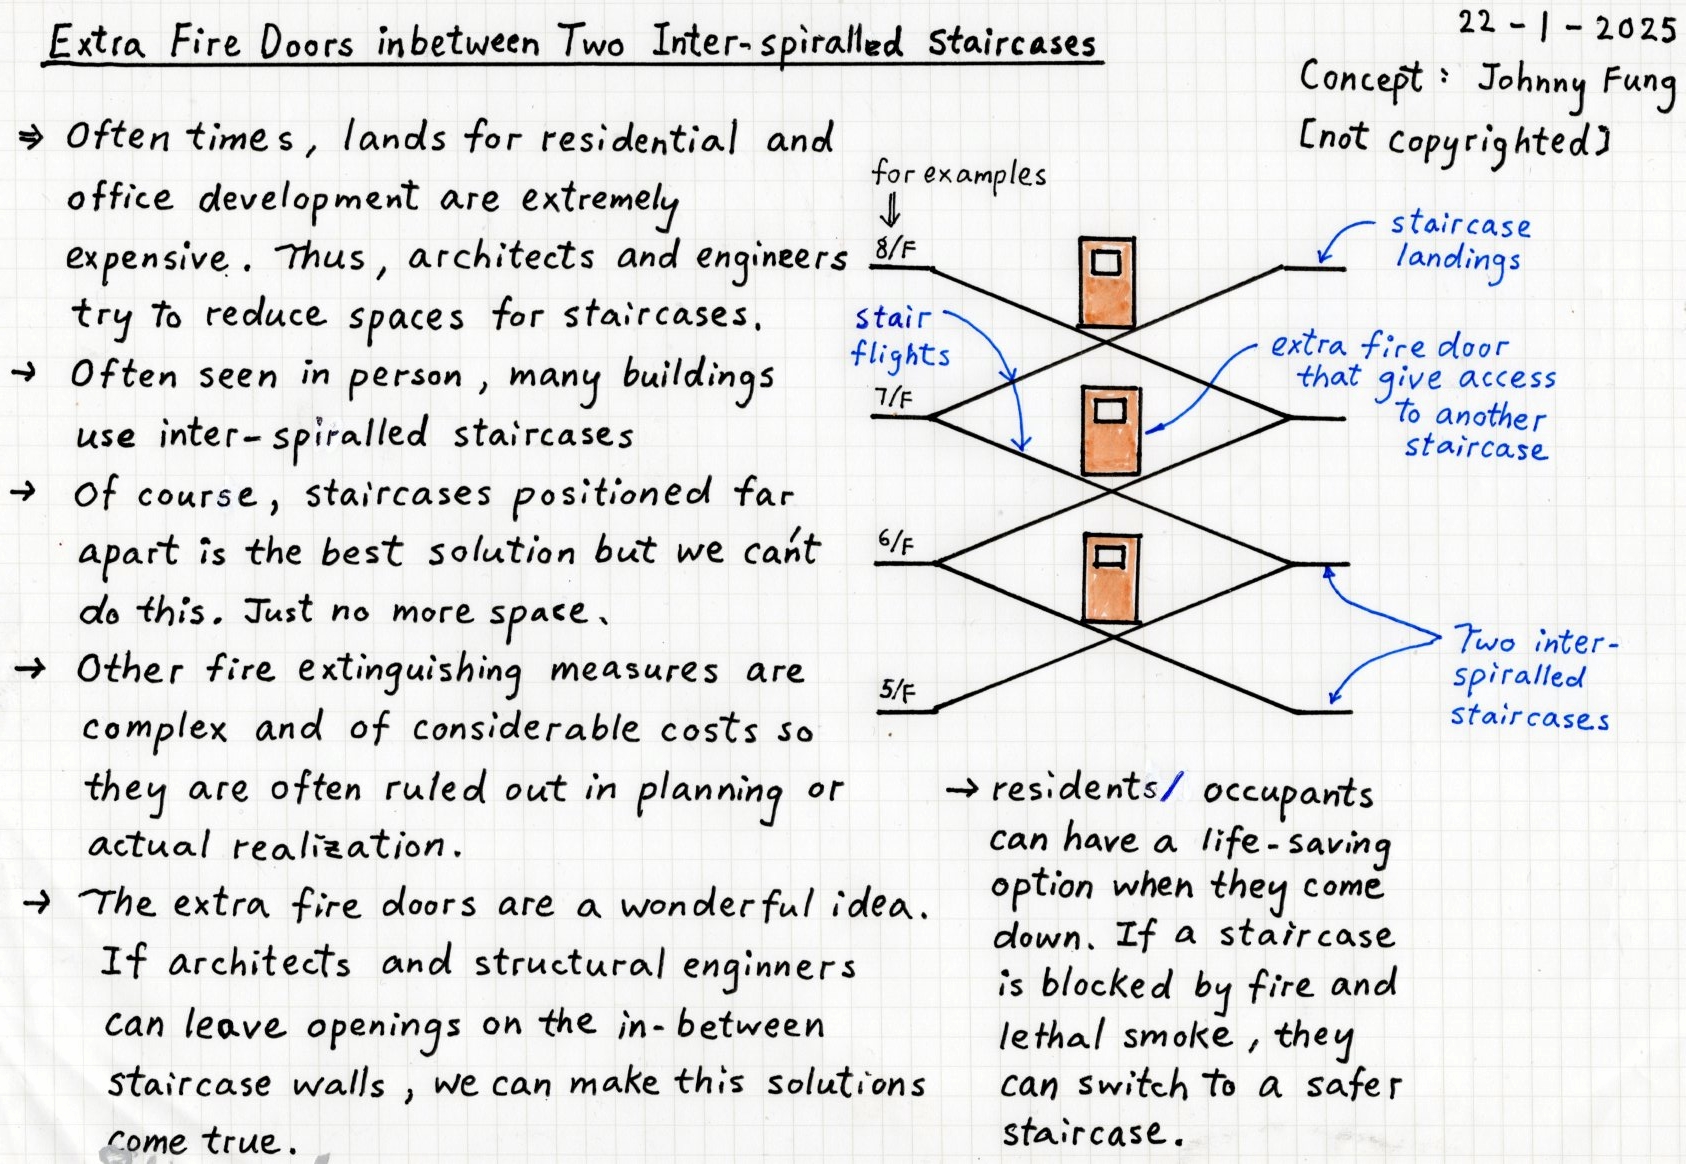 Extra Fire Doors inbetween Two Inter-spiralled Staircases
22-1-2025
Concept : Johnny Fung
[not copyrighted]
⇒ Often times, lands for residential and
office development are extremely
expensive. Thus, architects and engineers
try to reduce spaces for staircases.
→ Often seen in person, many buildings
use inter-spiralled staircases
→ Of course, staircases positioned far
apart is the best solution but we can't
do this. Just no more space.
→ Other fire extinguishing measures are
complex and of considerable costs so
they are often ruled out in planning or
actual realization.
→ The extra fire doors are a wonderful idea.
If architects and structural enginners
can leave openings on the in-between
staircase walls, we can make this solutions
come true.
for examples
⇓
8/F
7/F
6/F
5/F
staircase
landings
stair
flights
extra fire door
that give access
to another
staircase
Two inter-
spiralled
staircases
→ residents/ occupants
can have a life-saving
option when they come
down. If a staircase
is blocked by fire and
lethal smoke, they
can switch to a safer
staircase.